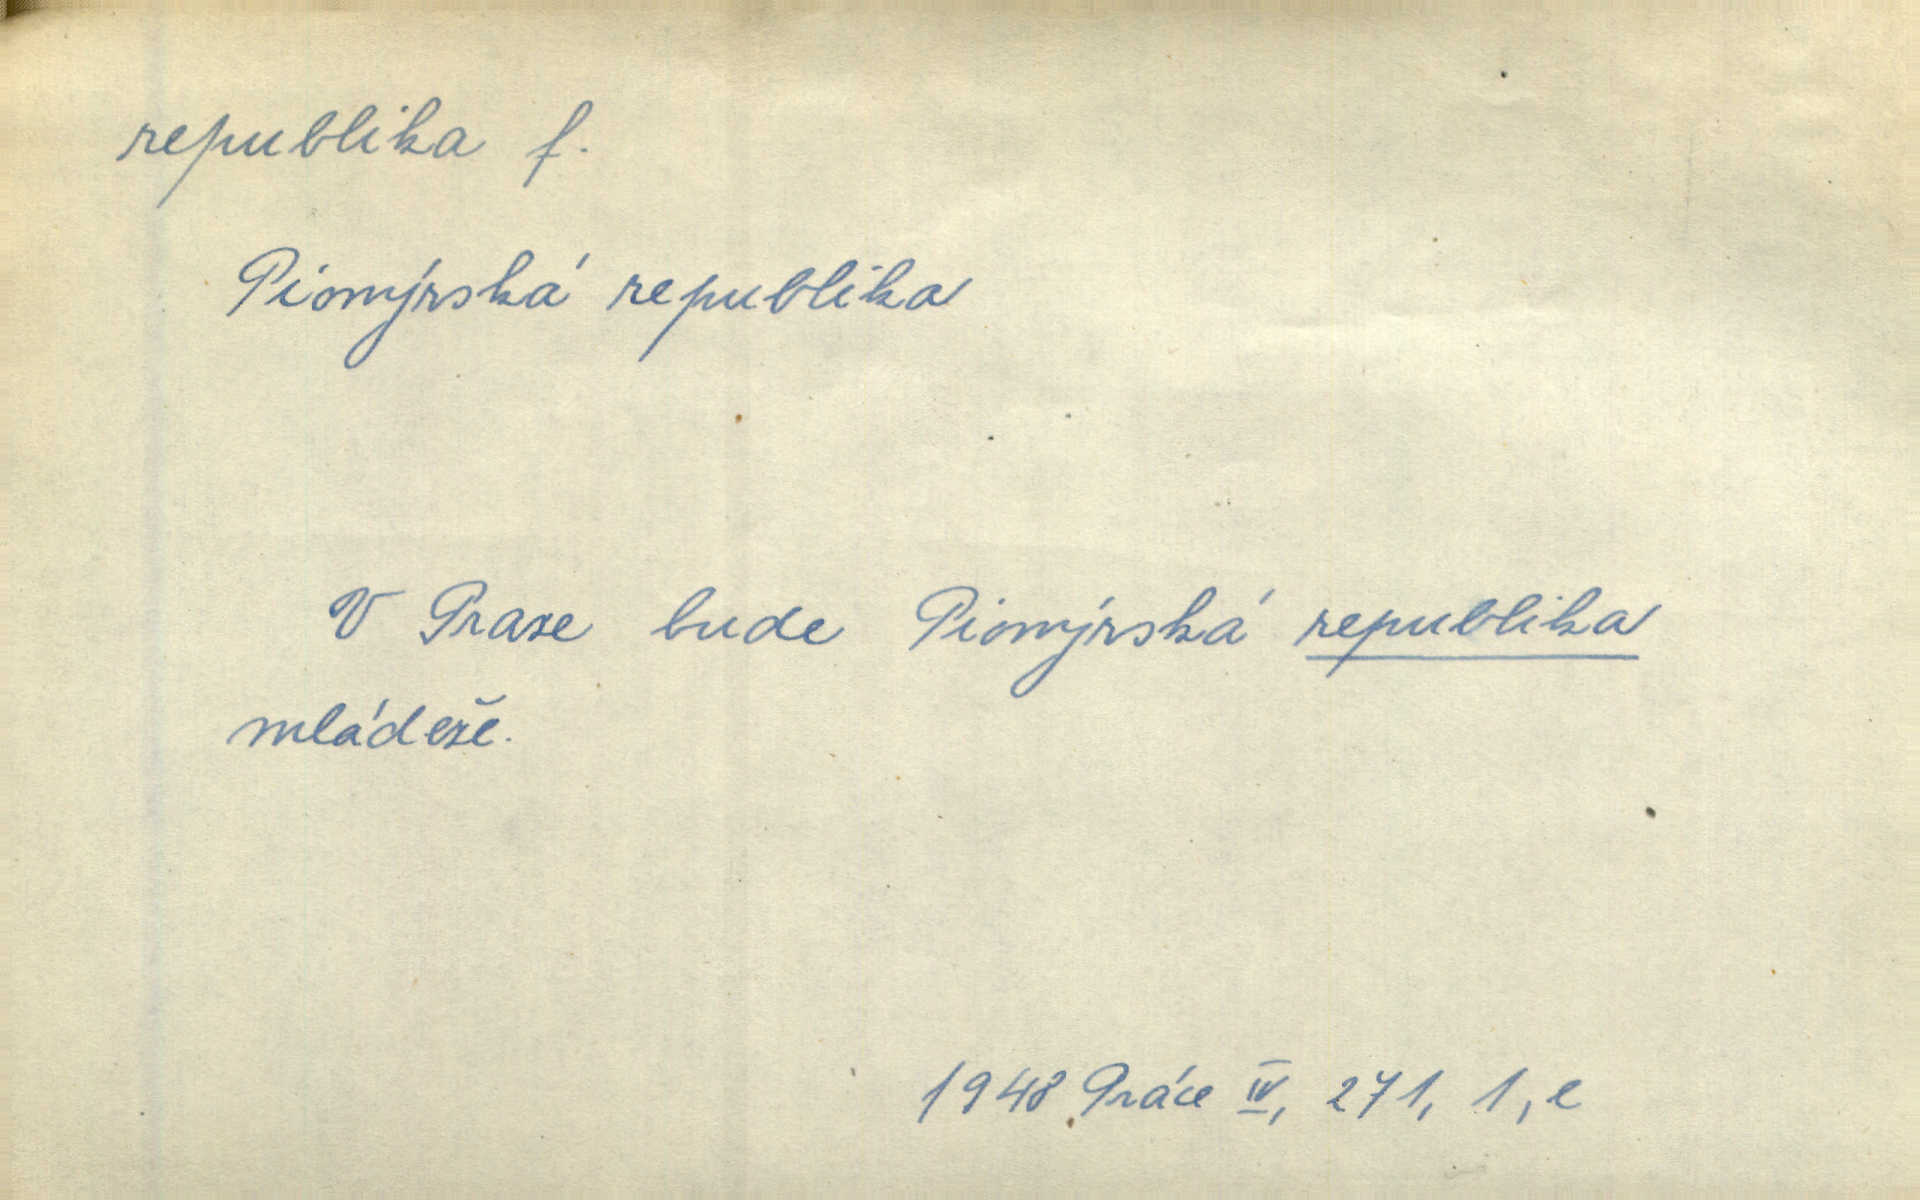 republika f.
Pionýrská republika
V Praze bude Pionýrská republika
mládeže.
1948 Práce IV, 271, 1, e